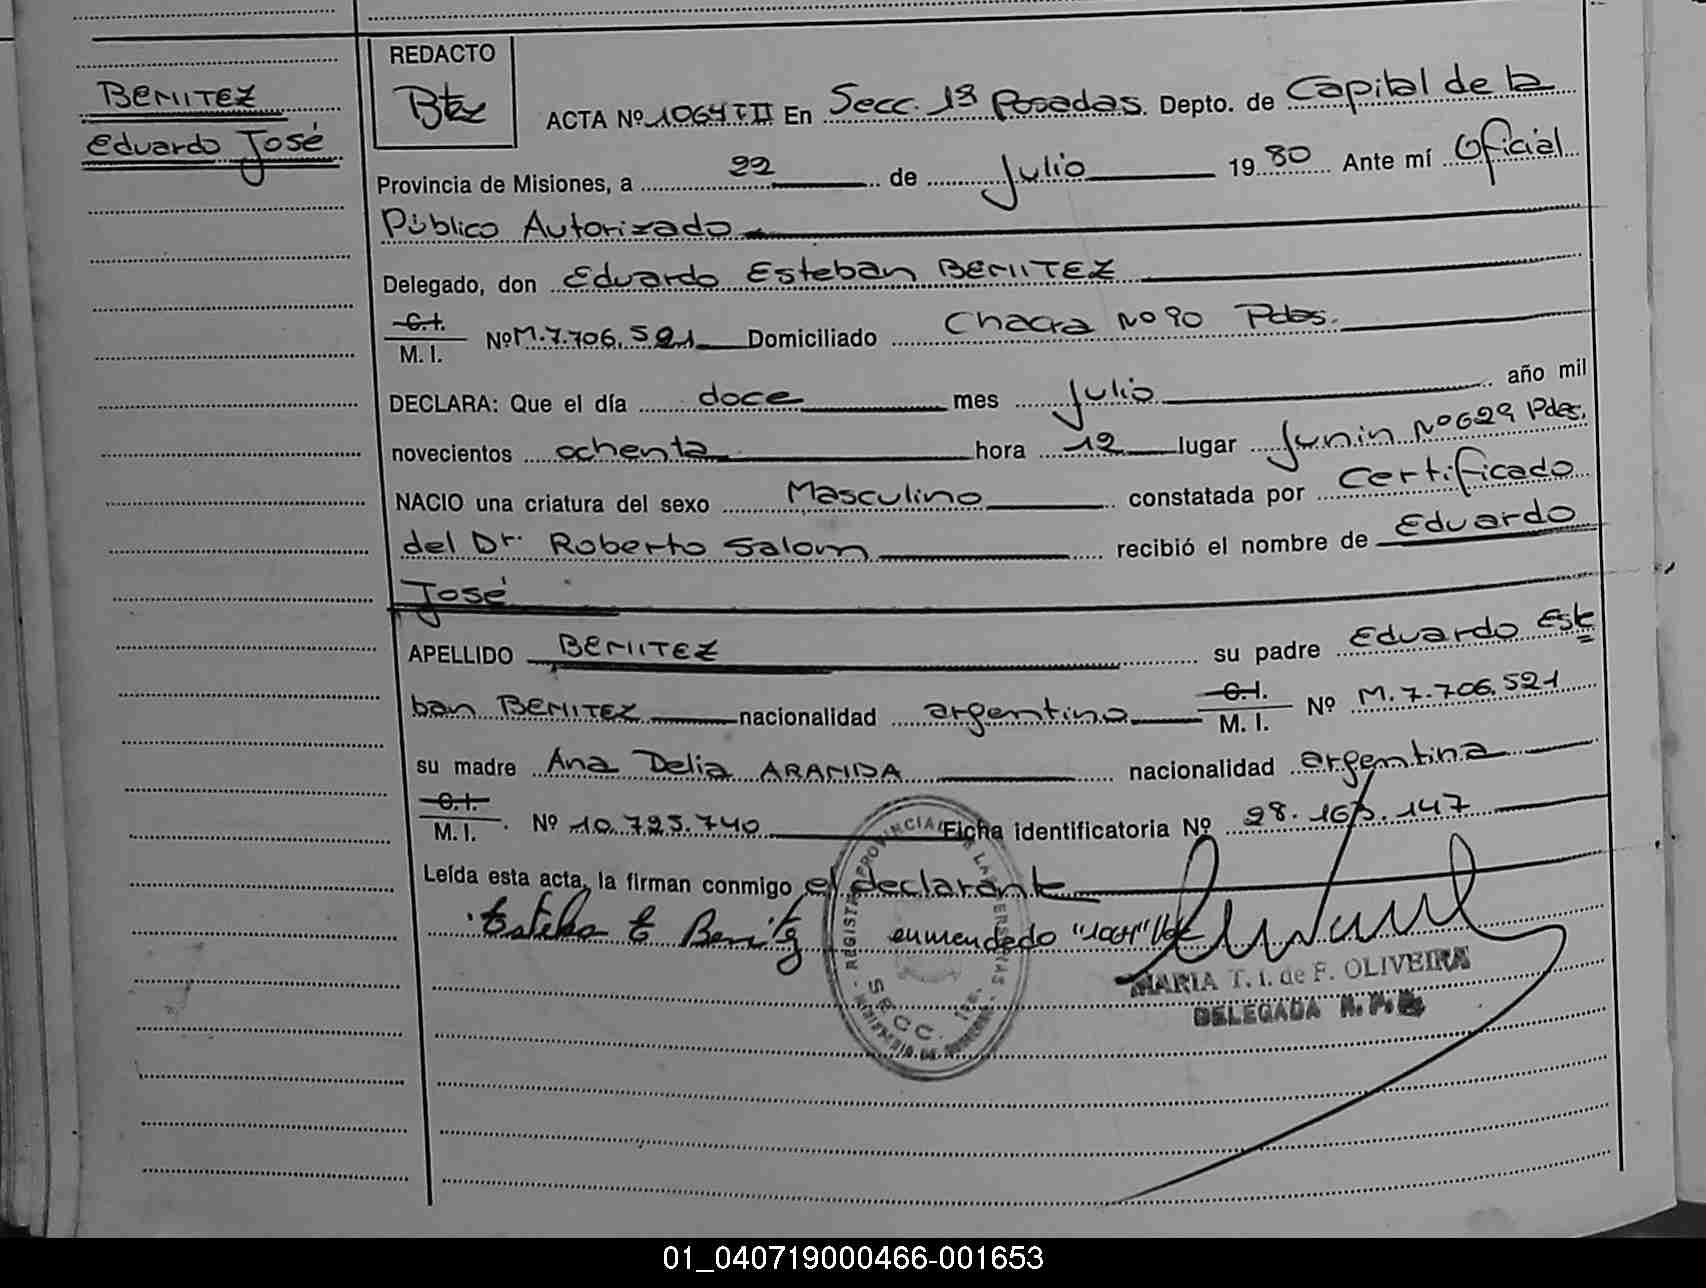 BENITEZ
Eduardo José
REDACTO
Btez
ACTA Nº 1064 TII En Secc. 1ª Posadas. Depto. de Capital de la
Provincia de Misiones, a 22 de Julio 1980 Ante mí Oficial
Público Autorizado
Delegado, don Eduardo Esteban BENITEZ
C.I.
M. I. Nº M.7.706.521 Domiciliado Chacra Nº 90 Pdas.
DECLARA: Que el día doce mes Julio año mil
novecientos ochenta hora 12 lugar Junin Nº 629 Pdas.
NACIO una criatura del sexo Masculino constatada por Certificado
del Dr. Roberto Salom recibió el nombre de Eduardo
José
APELLIDO BENITEZ su padre Eduardo Este
ban BENITEZ nacionalidad argentino C.I. M. I. Nº M.7.706.521
su madre Ana Delia ARANDA nacionalidad argentina
C.I.
M. I. Nº 10.725.740 Ficha identificatoria Nº 28.163.147
Leída esta acta, la firman conmigo el declarante
enmendedo "1064" Vale
REGISTRO PROVINCIAL DE LAS PERSONAS
SECC. 1ra.
MARIA T. I. de F. OLIVEIRA
DELEGADA R. P. P.
01_040719000466-001653